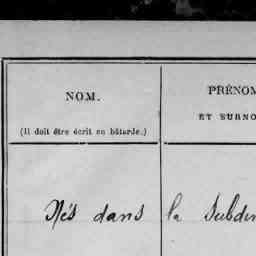 NOM.
PRÉNOM
ET SURNO
(Il doit être écrit en bâtarde.)
Nés dans la Subdiv